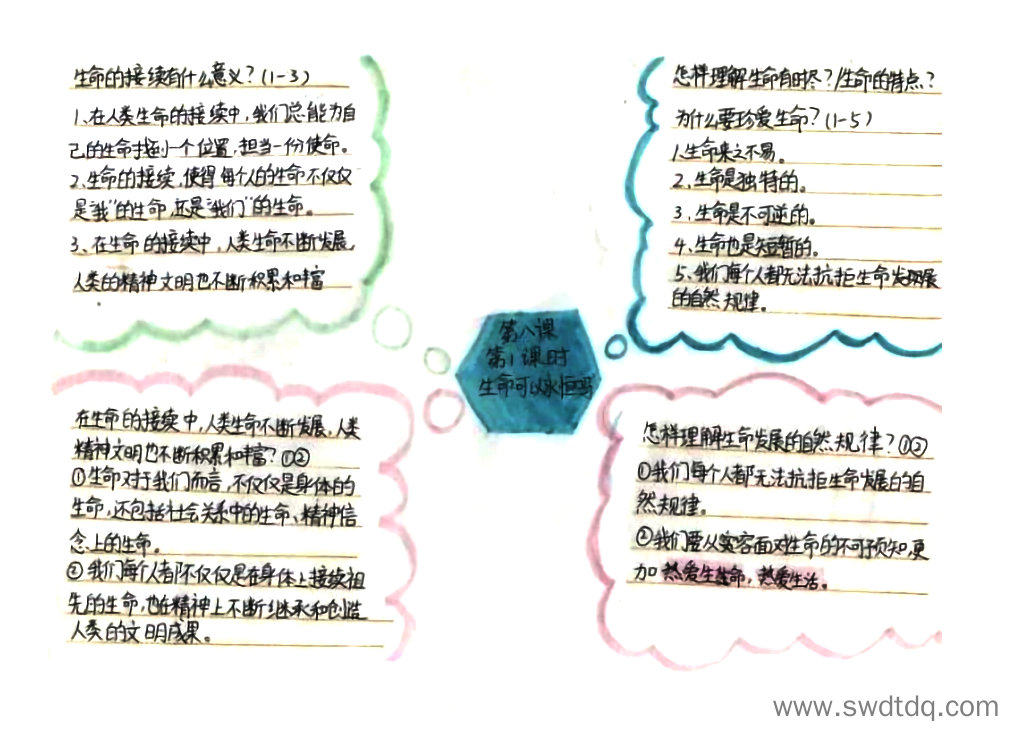 生命的接续有什么意义？(1-3)
1、在人类生命的接续中，我们总能为自
己的生命找到一个位置，担当一份使命。
2、生命的接续，使得每个人的生命不仅仅
是“我”的生命，还是“我们”的生命。
3、在生命的接续中，人类生命不断发展，
人类的精神文明也不断积累和丰富
怎样理解生命有时尽？/生命的特点？
为什么要珍爱生命？(1-5)
1.生命来之不易。
2、生命是独特的。
3、生命是不可逆的。
4、生命也是短暂的。
5、我们每个人都无法抗拒生命发展
的自然规律。
第八课
第1课时
生命可以永恒吗
在生命的接续中，人类生命不断发展，人类
精神文明也不断积累和丰富？①②
①生命对于我们而言，不仅仅是身体的
生命，还包括社会关系中的生命、精神信
念上的生命。
②我们每个人都不仅仅是在身体上接续祖
先的生命，也在精神上不断继承和创造
人类的文明成果。
怎样理解生命发展的自然规律？①②
①我们每个人都无法抗拒生命发展的自
然规律。
②我们要从容面对生命的不可预知，更
加热爱生命，热爱生活。
www.swdtdq.com